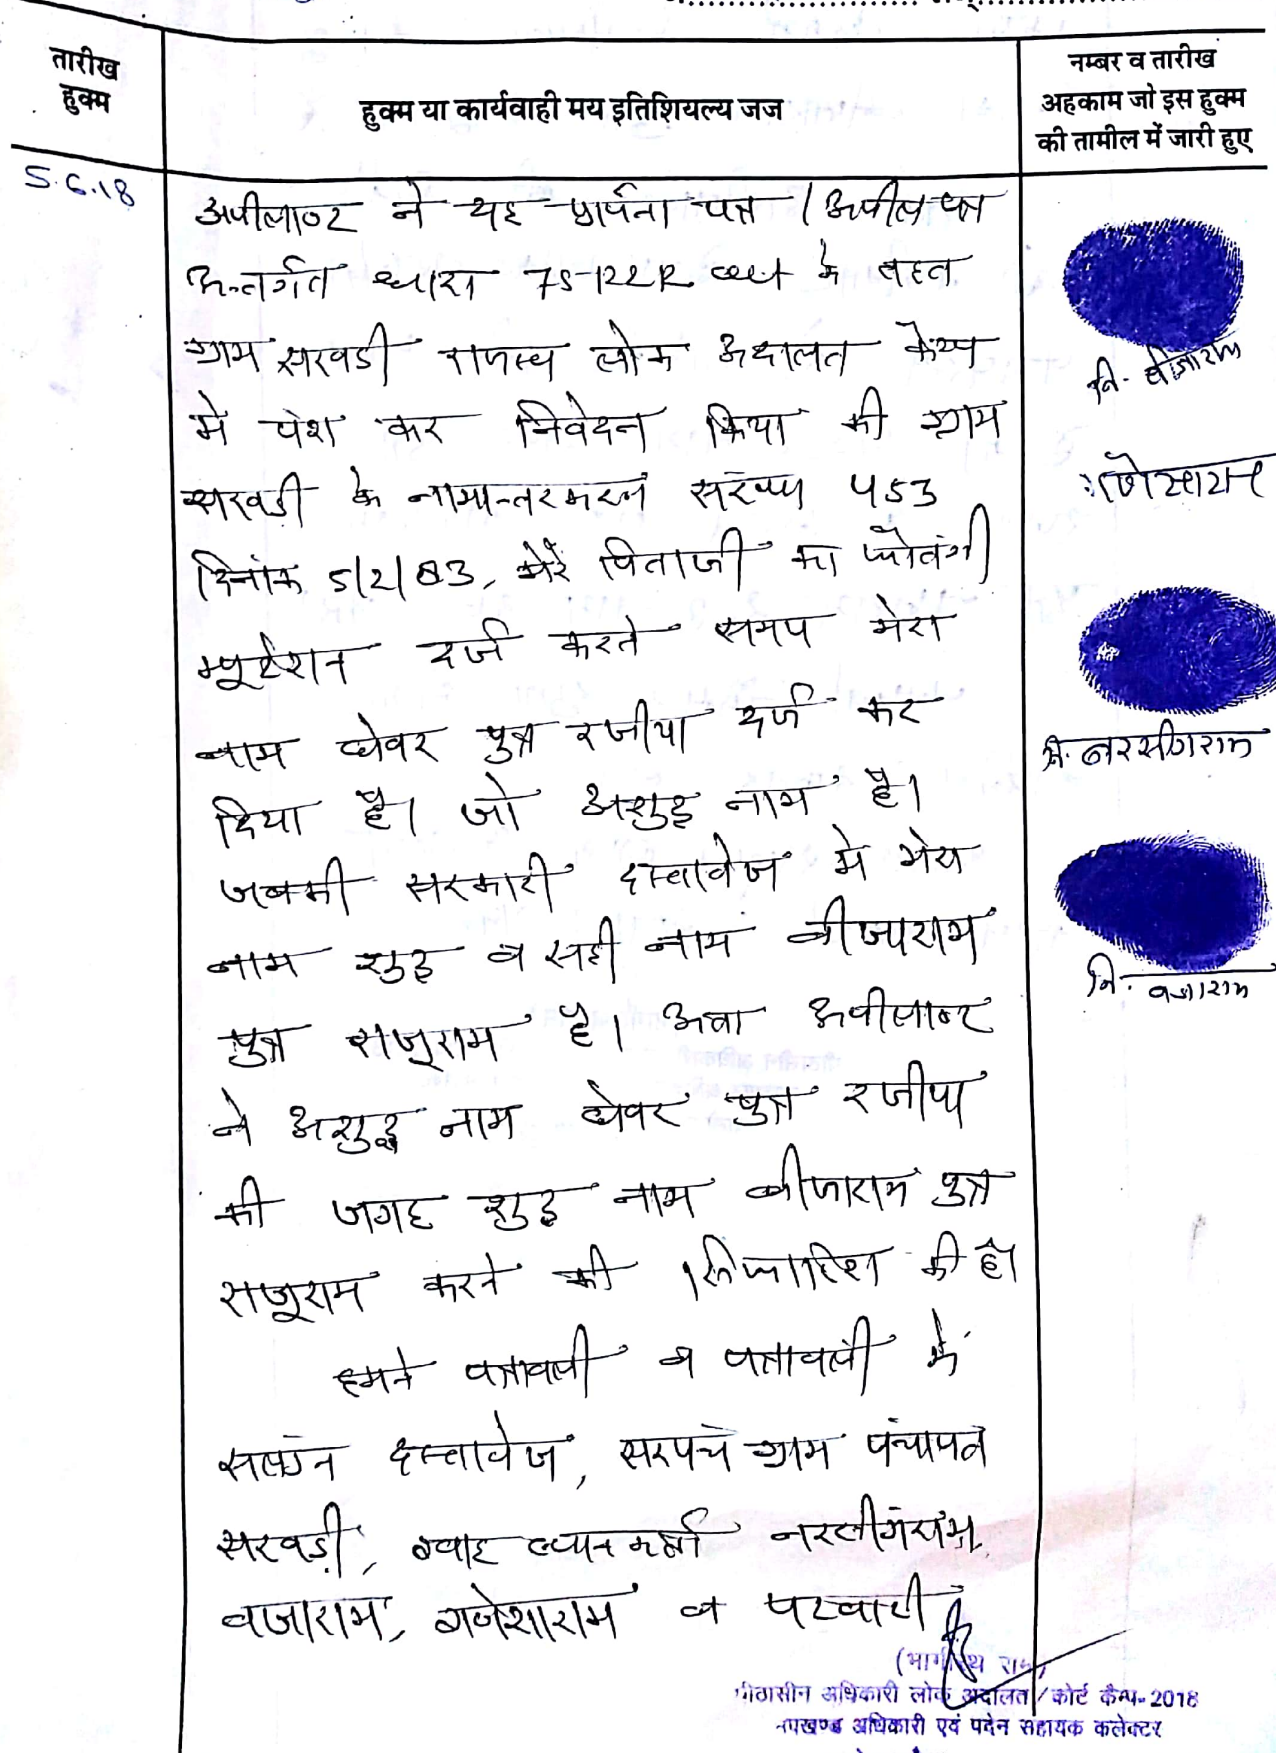 तारीख
हुक्म
हुक्म या कार्यवाही मय इतिशियल्य जज
नम्बर व तारीख
अहकाम जो इस हुक्म
की तामील में जारी हुए
5.6.18
अपीलाण्ट ने यह प्रार्थना पत्र / अपील पत्र
अन्तर्गत धारा 75 के तहत
ग्राम सरवडी राजस्व लोक अदालत केम्प
मे पेश कर निवेदन किया की ग्राम
सरवडी के नामान्तरकरण संख्या 453
दिनांक 5/2/83, मेरे पिताजी का फौतगी
म्यूटेशन दर्ज करते समय मेरा
नाम घेवर पुत्र रजीया दर्ज कर
दिया है। जो अशुद्ध नाम है।
जबकी सरकारी दस्तावेज मे मेरा
नाम शुद्ध व सही नाम बीजाराम
पुत्र राजुराम है। अतः अपीलाण्ट
ने अशुद्ध नाम घेवर पुत्र रजीया
की जगह शुद्ध नाम बीजाराम पुत्र
राजूराम करने की सिफारिश की है।
हमने पत्रावली व पत्रावली मे
सलंग्न दस्तावेज, सरपंच ग्राम पंचायत
सरवडी, गवाह ब्यानकर्ता नरसीगंराम,
वजाराम, गणेशाराम व पटवारी
नि. बीजाराम
गणेशाराम
नि. नरसीगराम
नि. वजाराम
(भागीरथ राम)
पीठासीन अधिकारी लोक अदालत/कोर्ट कैम्प-2018
उपखण्ड अधिकारी एवं पदेन सहायक कलेक्टर